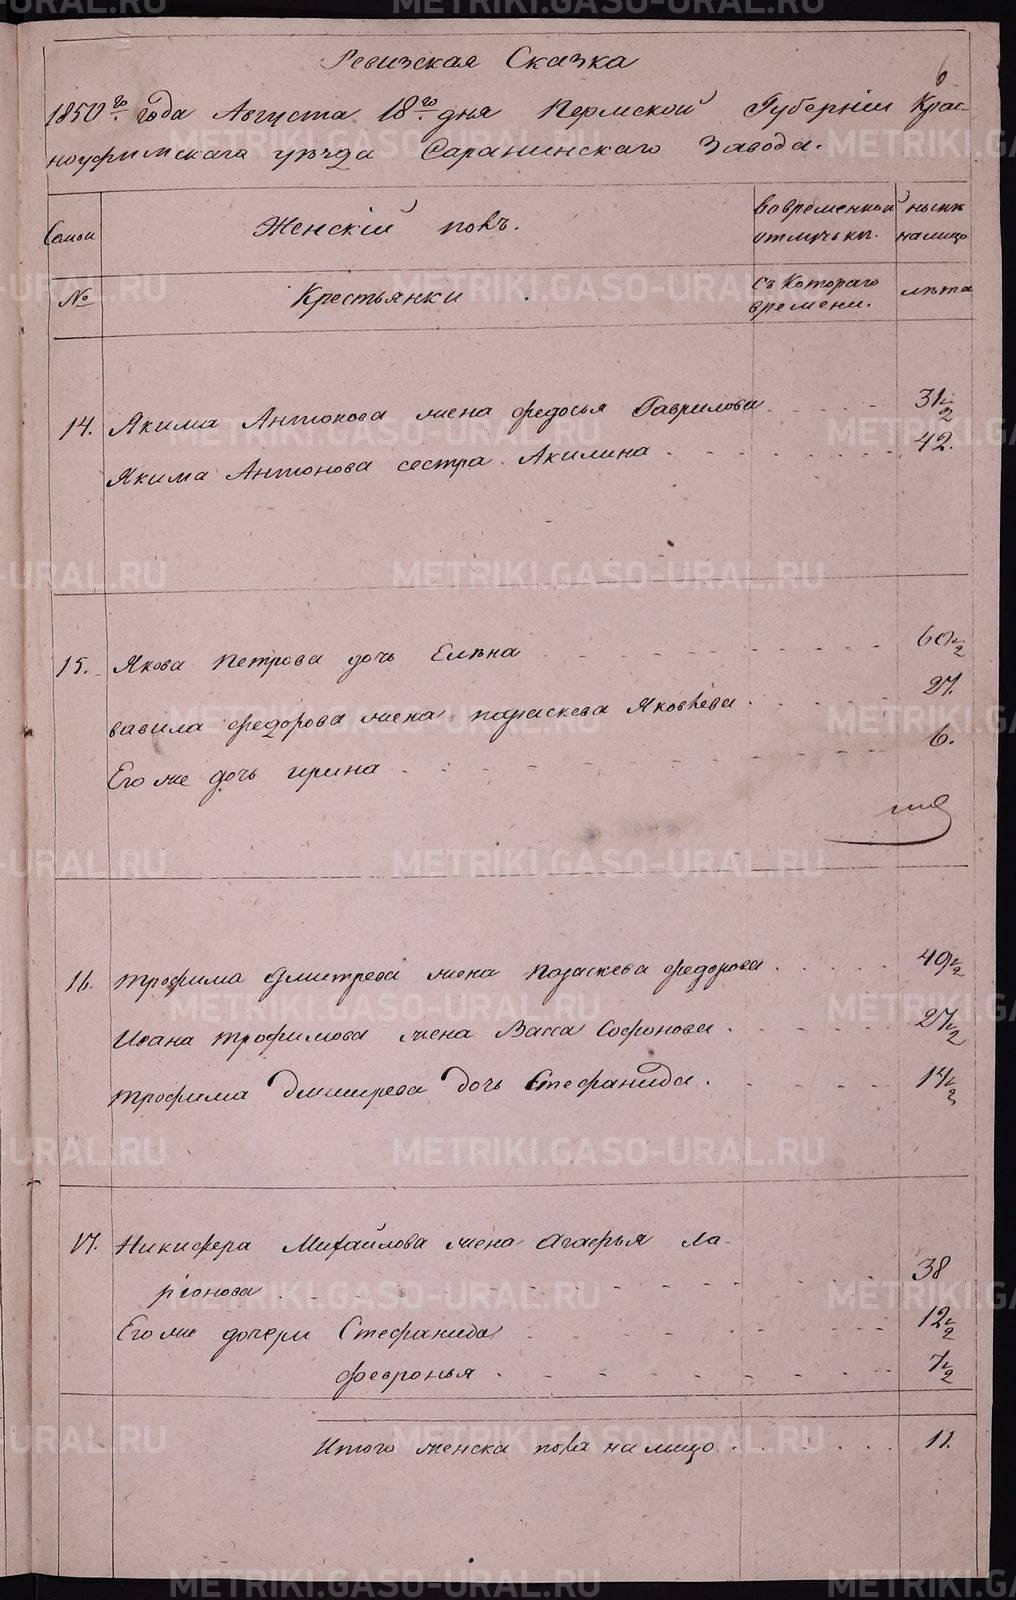 Ревизская Сказка
6
1850го года Августа 18го дня Пермской Губернии Крас-
ноуфимскаго уезда Саранинскаго Завода.
Семьи
Женскій полъ.
Во временной отлучьки.
ныне на лицо
№
Крестьянки
съ Котораго времени.
лета
14. Якима Антонова жена федосья Гаврилова 31½
Якима Антонова сестра Акилина 42.
15. Якова Петрова дочь Елена 60½
вавила федорова жена параскева Яковлева 27.
Его же дочь ирина 6.
16. трофима Дмитрева жена Параскева федорова 49½
Ивана трофимова жена Васса Софонова 27½
трофима Дмитрева дочь Стефанида 14½
17. Никифера Михайлова жена Агафья Ла-
ріонова 38
Его же дочери Стефанида 12½
февронья 7½
Итого женска пола на лицо 11.
METRIKI.GASO-URAL.RU